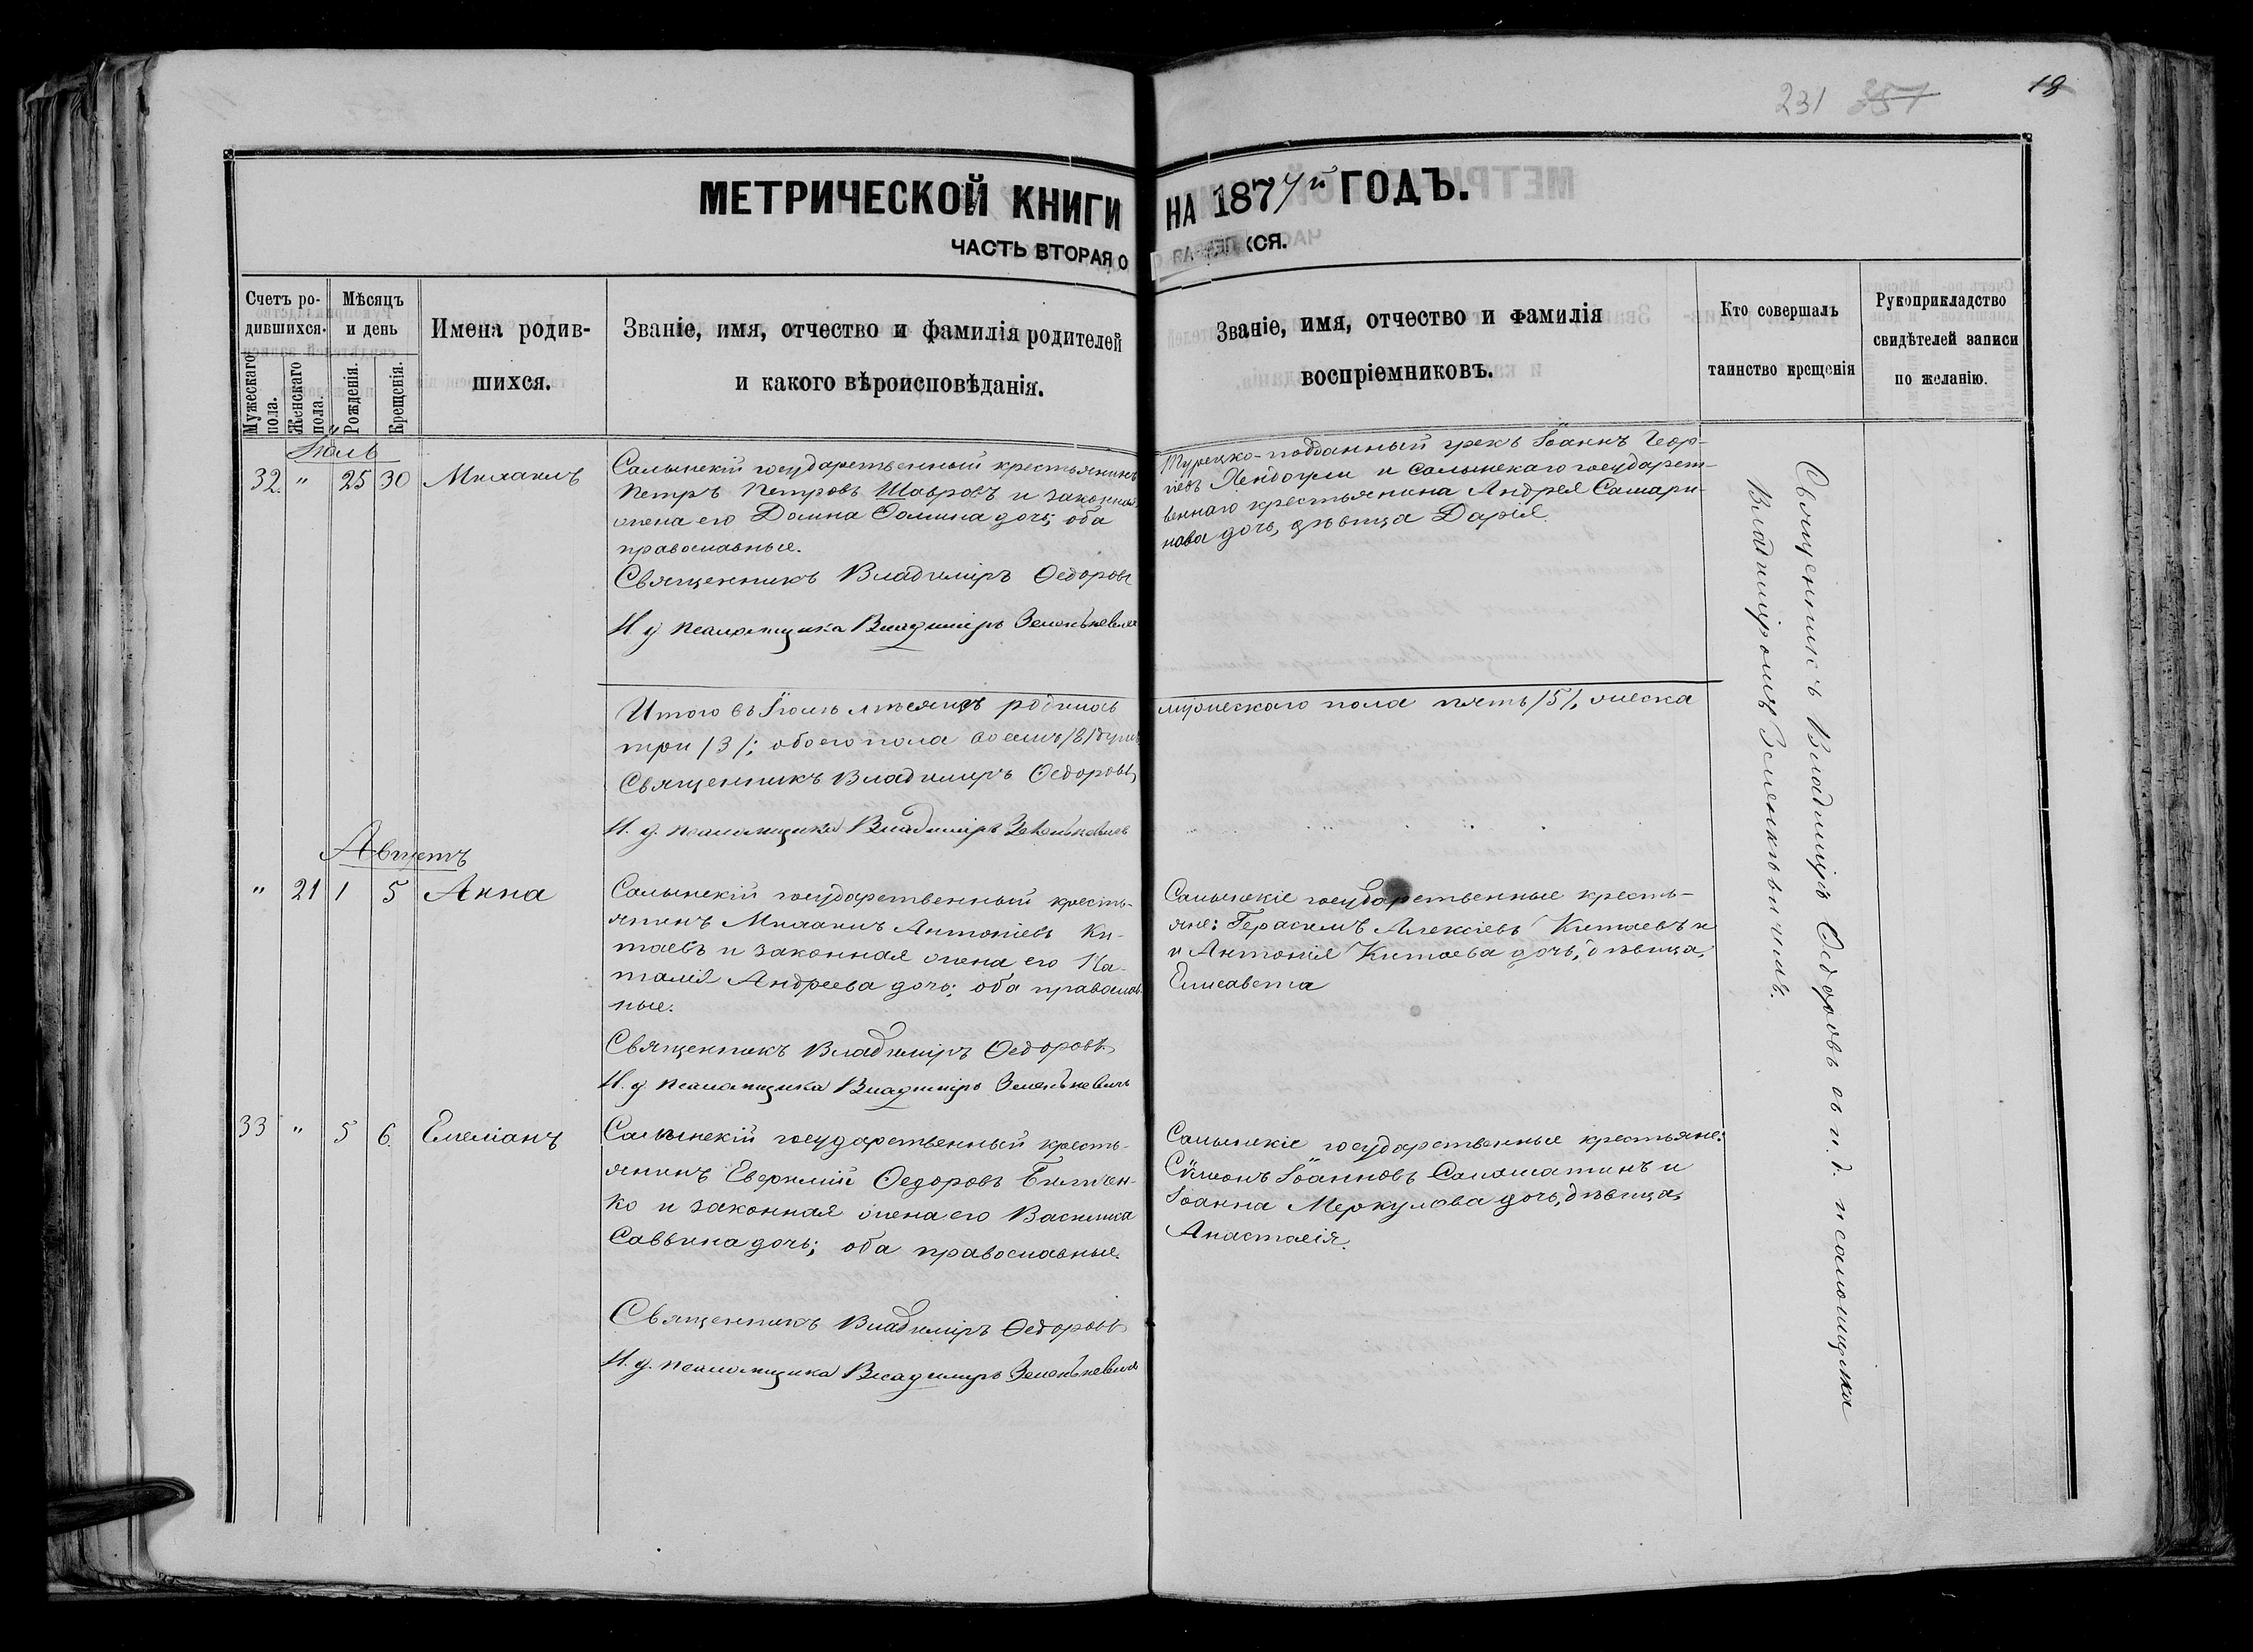 231 357 18
МЕТРИЧЕСКОЙ КНИГИ НА 1874й ГОДЪ.
ЧАСТЬ ВТОРАЯ О
КСЯ.
Счетъ родившихся.
Мужескаго пола.
Женскаго пола.
Мѣсяцъ и день
Рожденія.
Крещенія.
Имена родив-
шихся.
Званіе, имя, отчество и фамилія родителей
и какого вѣроисповѣданія.
Званіе, имя, отчество и фамилія
воспріемниковъ.
Кто совершалъ
таинство крещенія
Рукоприкладство
свидѣтелей записи
по желанію.
Іюль
32. " 25 30 Михаилъ
Салынскій государственный крестьянинъ
Петръ Петровъ Шавровъ и законная
жена его Домна Фомина дочь; оба
православные.
Священникъ Владиміръ Ѳедоровъ
И. д. псаломщика Владиміръ Зеленкевичъ
Турецко-подданный грекъ Іоаннъ Геор-
гіевъ и Салынскаго государст-
веннаго крестьянина Андрея Самари-
нова дочь, дѣвица Дарія.
Итого въ Іюлѣ мѣсяцѣ родилось
мужескаго пола пять /5/, женска
три /3/; обоего пола восемь /8/ душъ
Священникъ Владиміръ Ѳедоровъ
И. д. псаломщика Владиміръ Зеленкевичъ
Августъ
" 21 1 5 Анна
Салынскій государственный кресть-
янинъ Михаилъ Антоніевъ Ки-
таевъ и законная жена его На-
талія Андреева дочь; оба православ-
ные.
Священникъ Владиміръ Ѳедоровъ
И. д. псаломщика Владиміръ Зеленкевичъ
Салынскіе государственные кресть-
яне: Герасимъ Алексіевъ Китаевъ и
и Антонія Китаева дочь, дѣвица,
Елисавета
33 " 5 6. Емеліанъ
Салынскій государственный кресть-
янинъ Евфимій Ѳедоровъ
ко и законная жена его Василиса
Саввина дочь; оба православные.
Священникъ Владиміръ Ѳедоровъ
И. д. псаломщика Владиміръ Зеленкевичъ
Салынскіе государственные крестьяне:
Сѵмеонъ Іоанновъ Саломатинъ и
Іоанна Меркулова дочь, дѣвица,
Анастасія.
Священникъ Владиміръ Ѳедоровъ съ и. д. псаломщика
Владиміромъ Зеленкевичемъ.